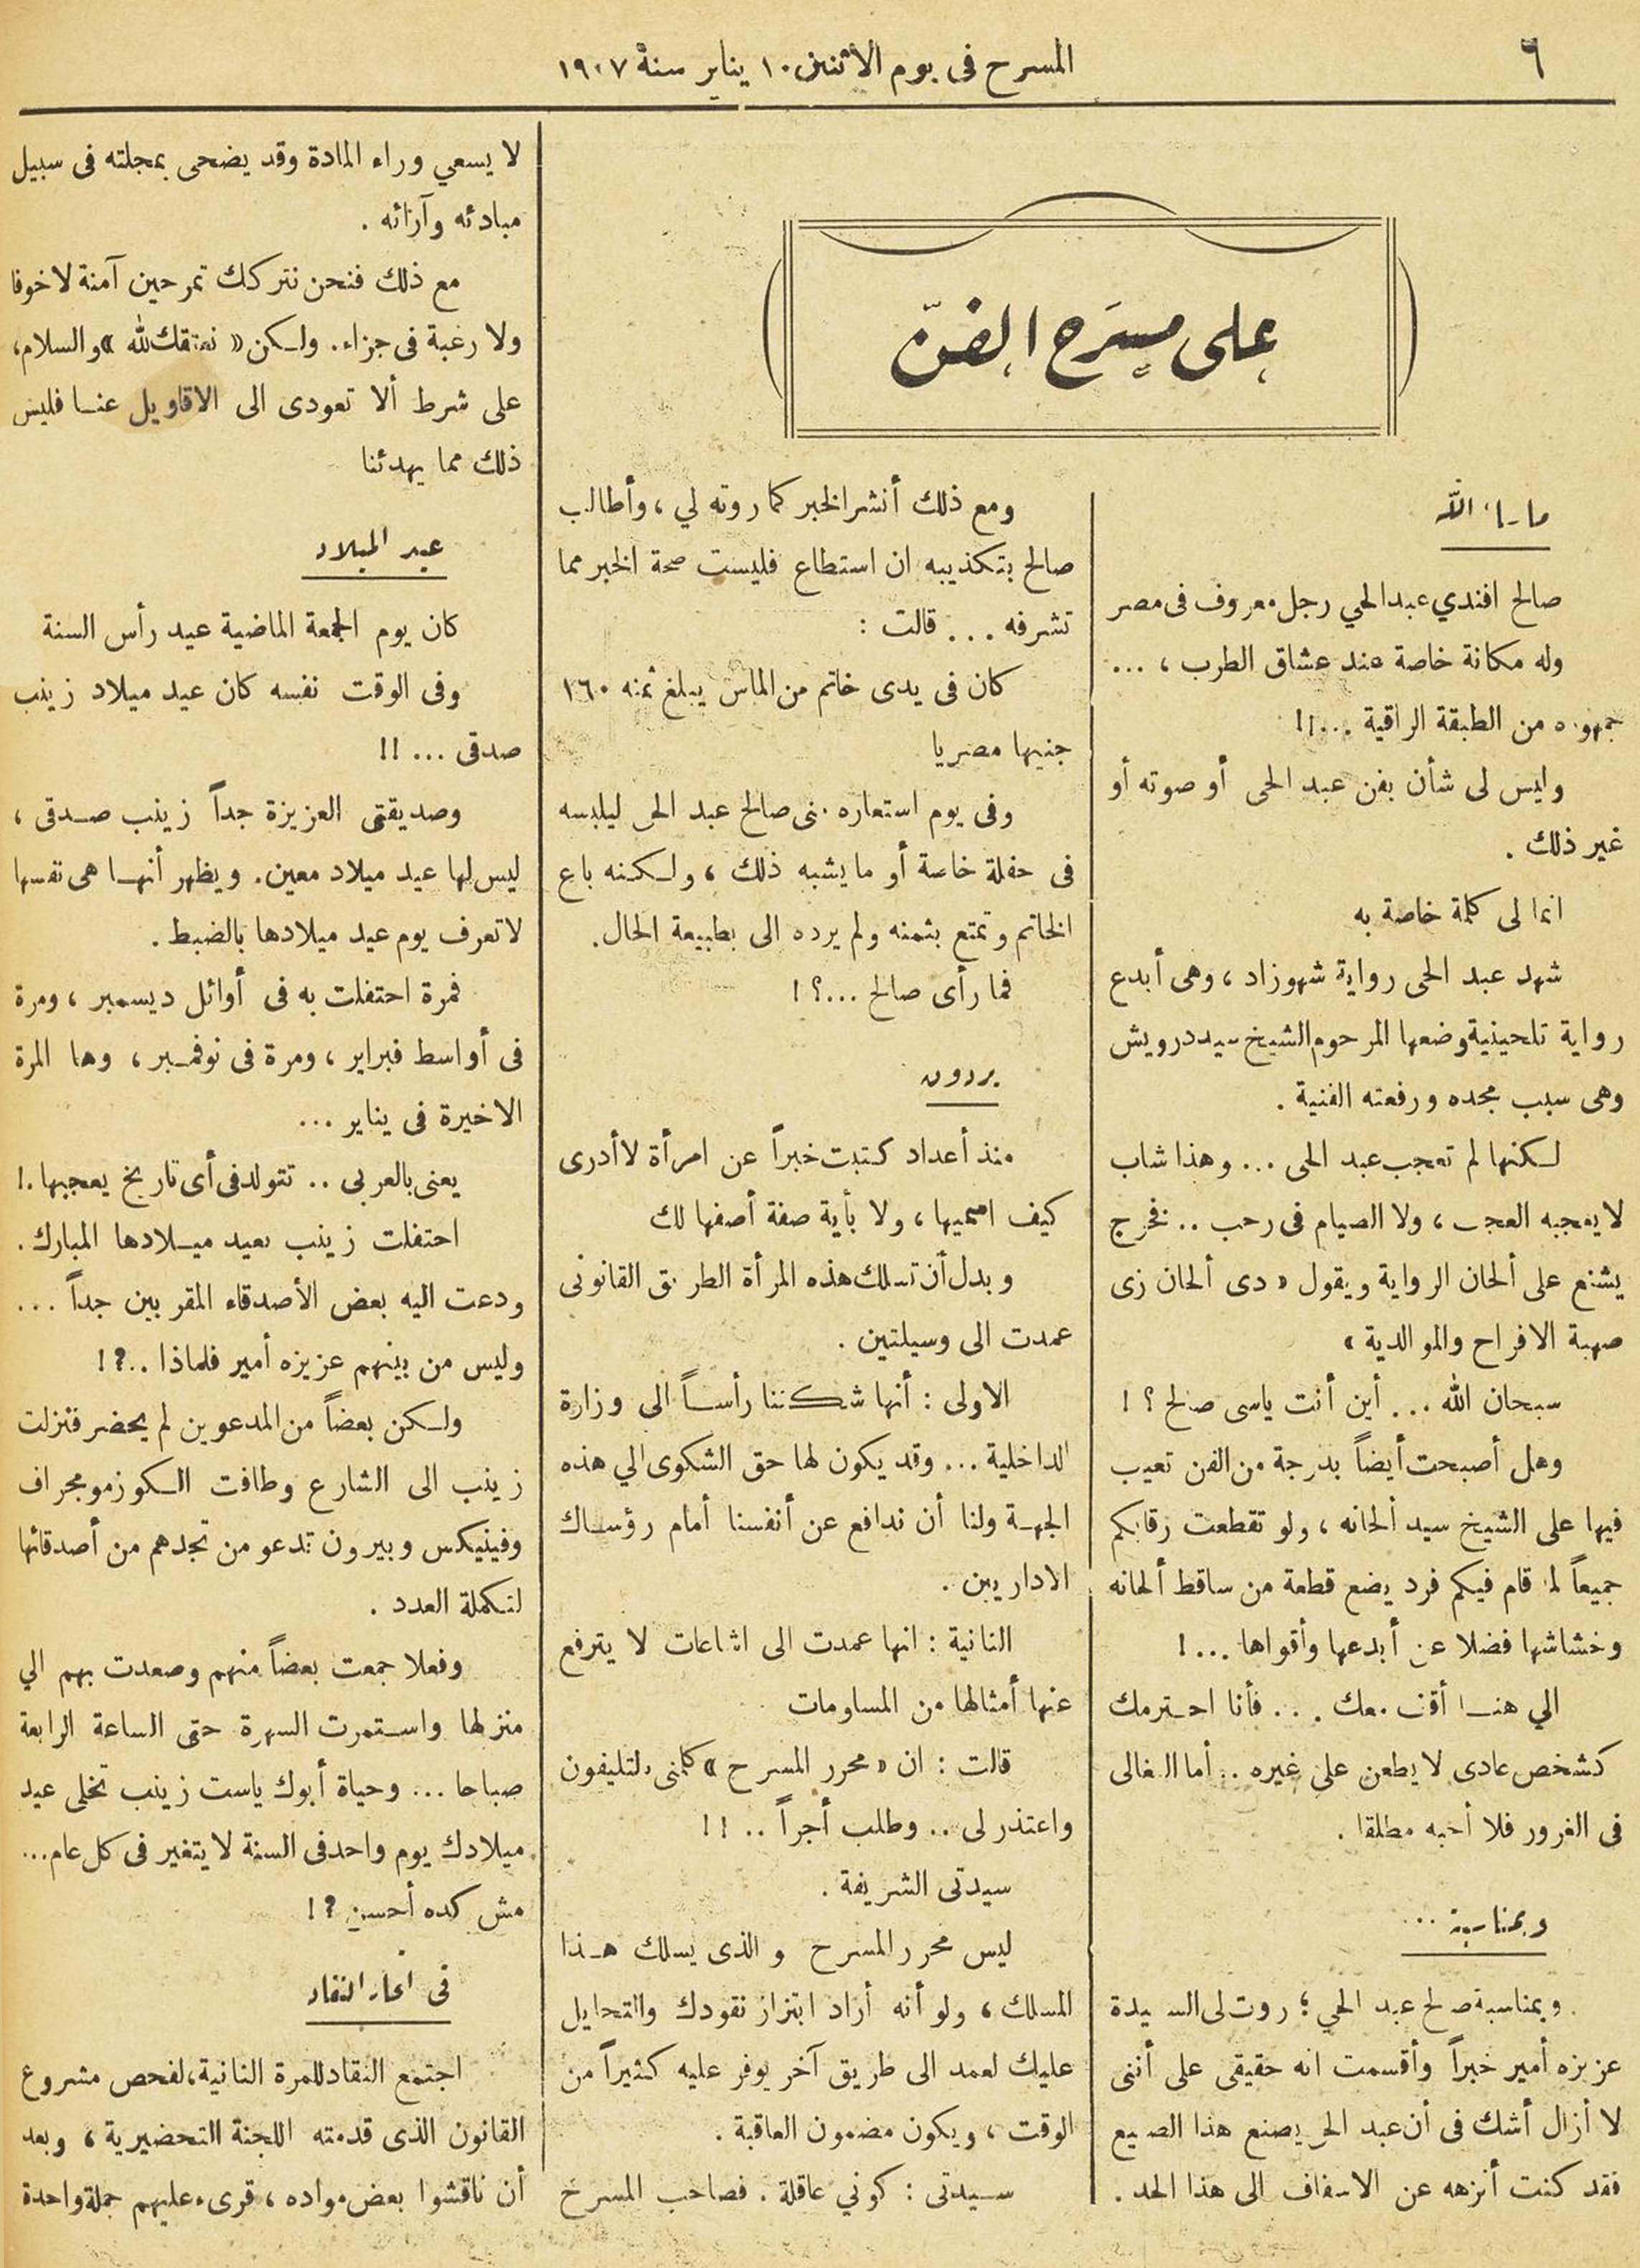 ٦
المسرح فى يوم الأثنين ١٠ يناير سنة ١٩٠٧
على مسرح الفن
ما الله
صالح افندي عبد الحي رجل معروف فى مصر
وله مكانة خاصة عند عشاق الطرب ، ...
جمهوره من الطبقة الراقية ...!!
وليس لى شأن بفن عبد الحى أو صوته أو
غير ذلك .
انما لى كلمة خاصة به
شهد عبد الحى رواية شهوزاد ، وهى أبدع
رواية تلحينية وضعها المرحوم الشيخ سيد درويش
وهى سبب مجده ورفعته الفنية .
لكنها لم تعجب عبد الحى ... وهذا شاب
لا يعجبه العجب ، ولا الصيام فى رجب .. فخرج
يشنع على ألحان الرواية ويقول « دى ألحان زى
صهبة الافراح والموالدية »
سبحان الله ... أين أنت ياسى صالح ؟ !
وهل أصبحت أيضاً بدرجة من الفن تعيب
فيها على الشيخ سيد ألحانه ، ولو تقطعت رقابكم
جميعاً لما قام فيكم فرد يضع قطعة من ساقط ألحانه
وخشاشها فضلا عن أبدعها وأقواها ... !
الي هنا أقف معك ... فأنا احترمك
كشخص عادى لا يطعن على غيره .. أما الغالى
فى الغرور فلا أحبه مطلقا .
وبمناسبة ...
وبمناسبة صالح عبد الحي ؛ روت لى السيدة
عزيزه أمير خبراً وأقسمت انه حقيقى على أننى
لا أزال أشك فى أن عبد الحى يصنع هذا الصنيع
فقد كنت أنزهه عن الاسفاف الى هذا الحد .
ومع ذلك أنشر الخبر كما روته لي ، وأطالب
صالح بتكذيبه ان استطاع فليست صحة الخبر مما
تشرفه ... قالت :
كان فى يدى خاتم من الماس يبلغ ثمنه ١٦٠
جنيها مصريا
وفى يوم استعاره منى صالح عبد الحى ليلبسه
فى حفلة خاصة أو ما يشبه ذلك ، ولكنه باع
الخاتم وتمتع بثمنه ولم يرده الى بطبيعة الحال .
فما رأى صالح ...؟ !
بردون
منذ أعداد كتبت خبراً عن امرأة لا أدرى
كيف اسميها ، ولا بأية صفة أصفها لك
وبدل أن تسلك هذه المرأة الطريق القانونى
عمدت الى وسيلتين .
الاولى : أنها شكتنا رأساً الى وزارة
الداخلية ... وقد يكون لها حق الشكوى الي هذه
الجهة ولنا أن ندافع عن أنفسنا أمام رؤساك
الاداريين .
الثانية : انها عمدت الى اشاعات لا يترفع
عنها أمثالها من المساومات
قالت : ان « محرر المسرح » كلمنى بالتليفون
واعتذر لى .. وطلب أجراً .. !!
سيدتى الشريفة .
ليس محرر المسرح والذى يسلك هذا
المسلك ، ولو أنه أراد ابتزاز نقودك والتحايل
عليك لعمد الى طريق آخر يوفر عليه كثيراً من
الوقت ، ويكون مضمون العاقبة .
سيدتى : كوني عاقلة . فصاحب المسرح
لا يسعي وراء المادة وقد يضحى بمجلته فى سبيل
مبادئه وآرائه .
مع ذلك فنحن نتركك تمرحين آمنة لا خوفا
ولا رغبة فى جزاء . ولكن « نعتقك لله » والسلام ،
على شرط ألا تعودى الى الاقاويل عنا فليس
ذلك مما يهدئنا
عيد الميلاد
كان يوم الجمعة الماضية عيد رأس السنة
وفى الوقت نفسه كان عيد ميلاد زينب
صدقى ... !!
وصديقتى العزيزة جداً زينب صدقى ،
ليس لها عيد ميلاد معين . ويظهر أنها هى نفسها
لا تعرف يوم عيد ميلادها بالضبط .
فمرة احتفلت به فى أوائل ديسمبر ، ومرة
فى أواسط فبراير ، ومرة فى نوفمبر ، وها المرة
الاخيرة فى يناير ...
يعنى بالعربى .. تتولد فى أى تاريخ يعجبها .!
احتفلت زينب بعيد ميلادها المبارك .
ودعت اليه بعض الأصدقاء المقربين جداً ...
وليس من بينهم عزيزه أمير فلماذا ..؟ !
ولكن بعضاً من المدعوين لم يحضر فنزلت
زينب الى الشارع وطافت الكوزمو مجراف
وفينيكس وبيرون تدعو من تجدهم من أصدقائها
لتكملة العدد .
وفعلا جمعت بعضاً منهم وصعدت بهم الي
منزلها واستمرت السهرة حتى الساعة الرابعة
صباحا ... وحياة أبوك ياست زينب تخلى عيد
ميلادك يوم واحد فى السنة لا يتغير فى كل عام ...
مش كده أحسن ؟ !
فى النقاد
اجتمع النقاد للمرة الثانية ، لفحص مشروع
القانون الذى قدمته اللجنة التحضيرية ، وبعد
أن ناقشوا بعض مواده ، قرىء عليهم جملة واحدة